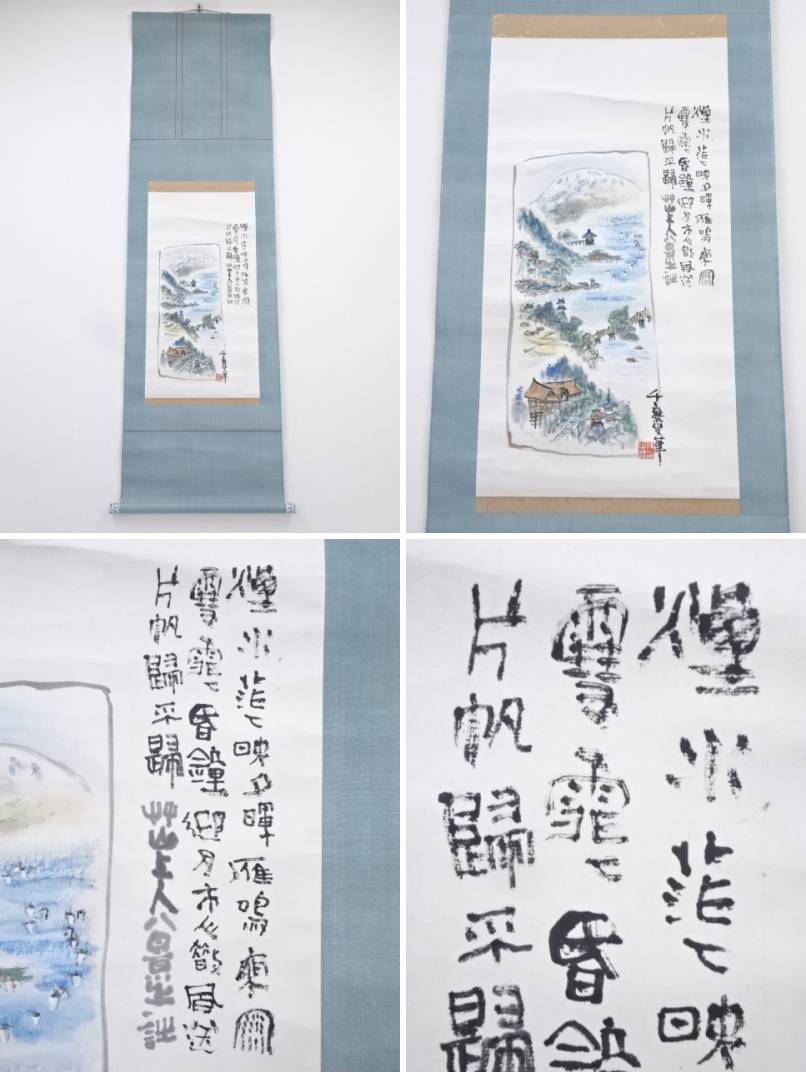 煙水茫々映夕暉雁鳴寒雨
雪霏々昏鐘迎月市人散風送
片帆歸歸 艸山上人八景之詩